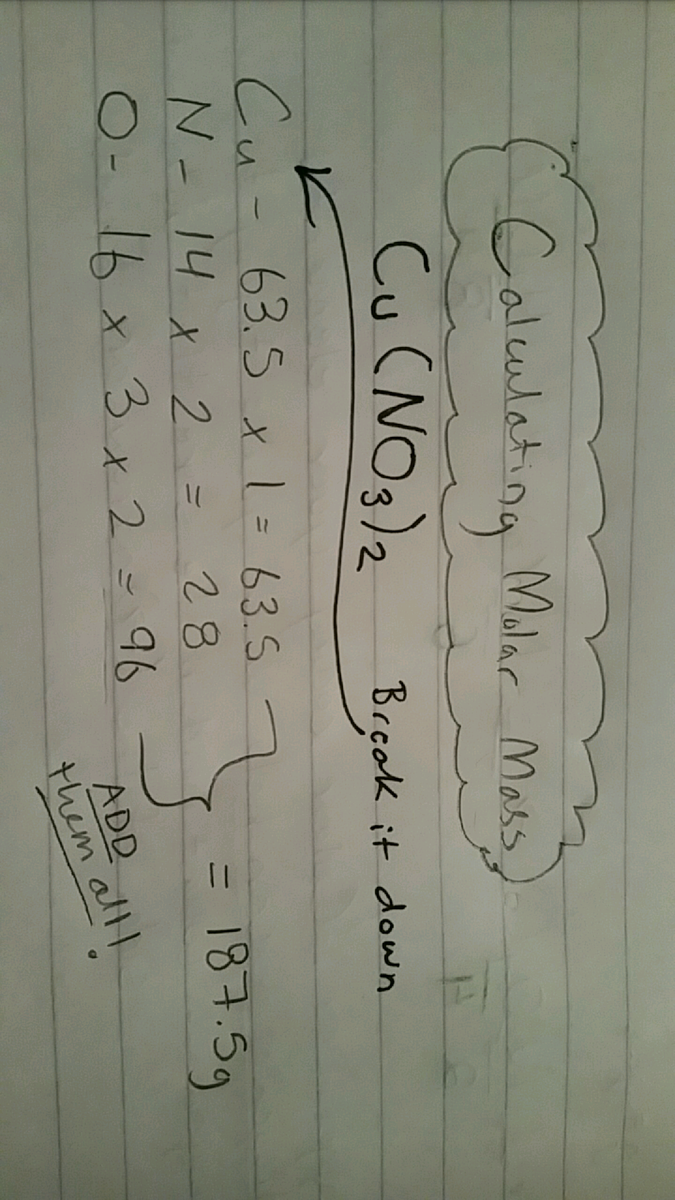 Calculating Molar Mass
Cu(NO₃)₂ Break it down
Cu - 63.5 x 1 = 63.5
N - 14 x 2 = 28
= 187.5g
O - 16 x 3 x 2 = 96
ADD
them all!